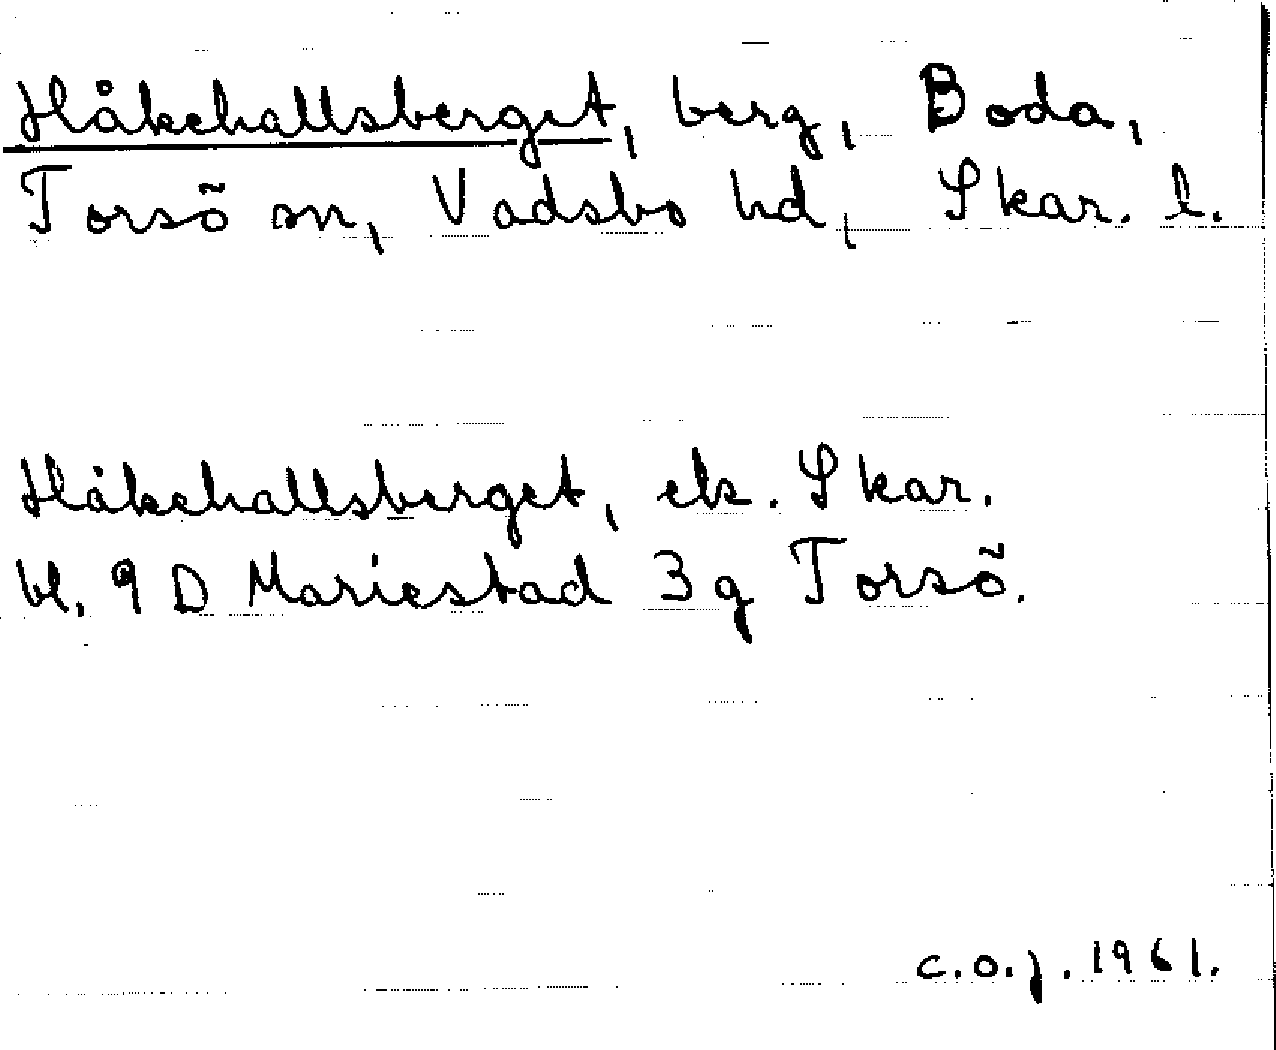 Håkehallsberget, berg, Boda,
Torsö sn, Vadsbo hd, Skar. l.
Håkehallsberget, ek. Skar.
bl. 9 D Mariestad 3 g Torsö.
C.O.J. 1961.